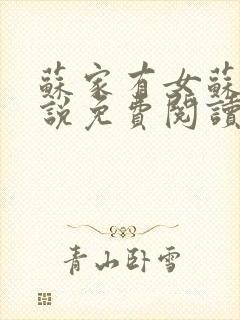 蘇家有女蘇
說免費閱讀
青山臥雪